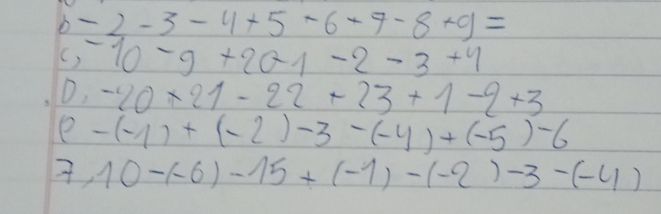 b -2-3-4+5-6+7-8+9=
c, -10-9+20-1-2-3+4
D, -20+21-22+23+1-2+3
e -(-1)+(-2)-3-(-4)+(-5)-6
7, 10-(-6)-15+(-1)-(-2)-3-(-4)